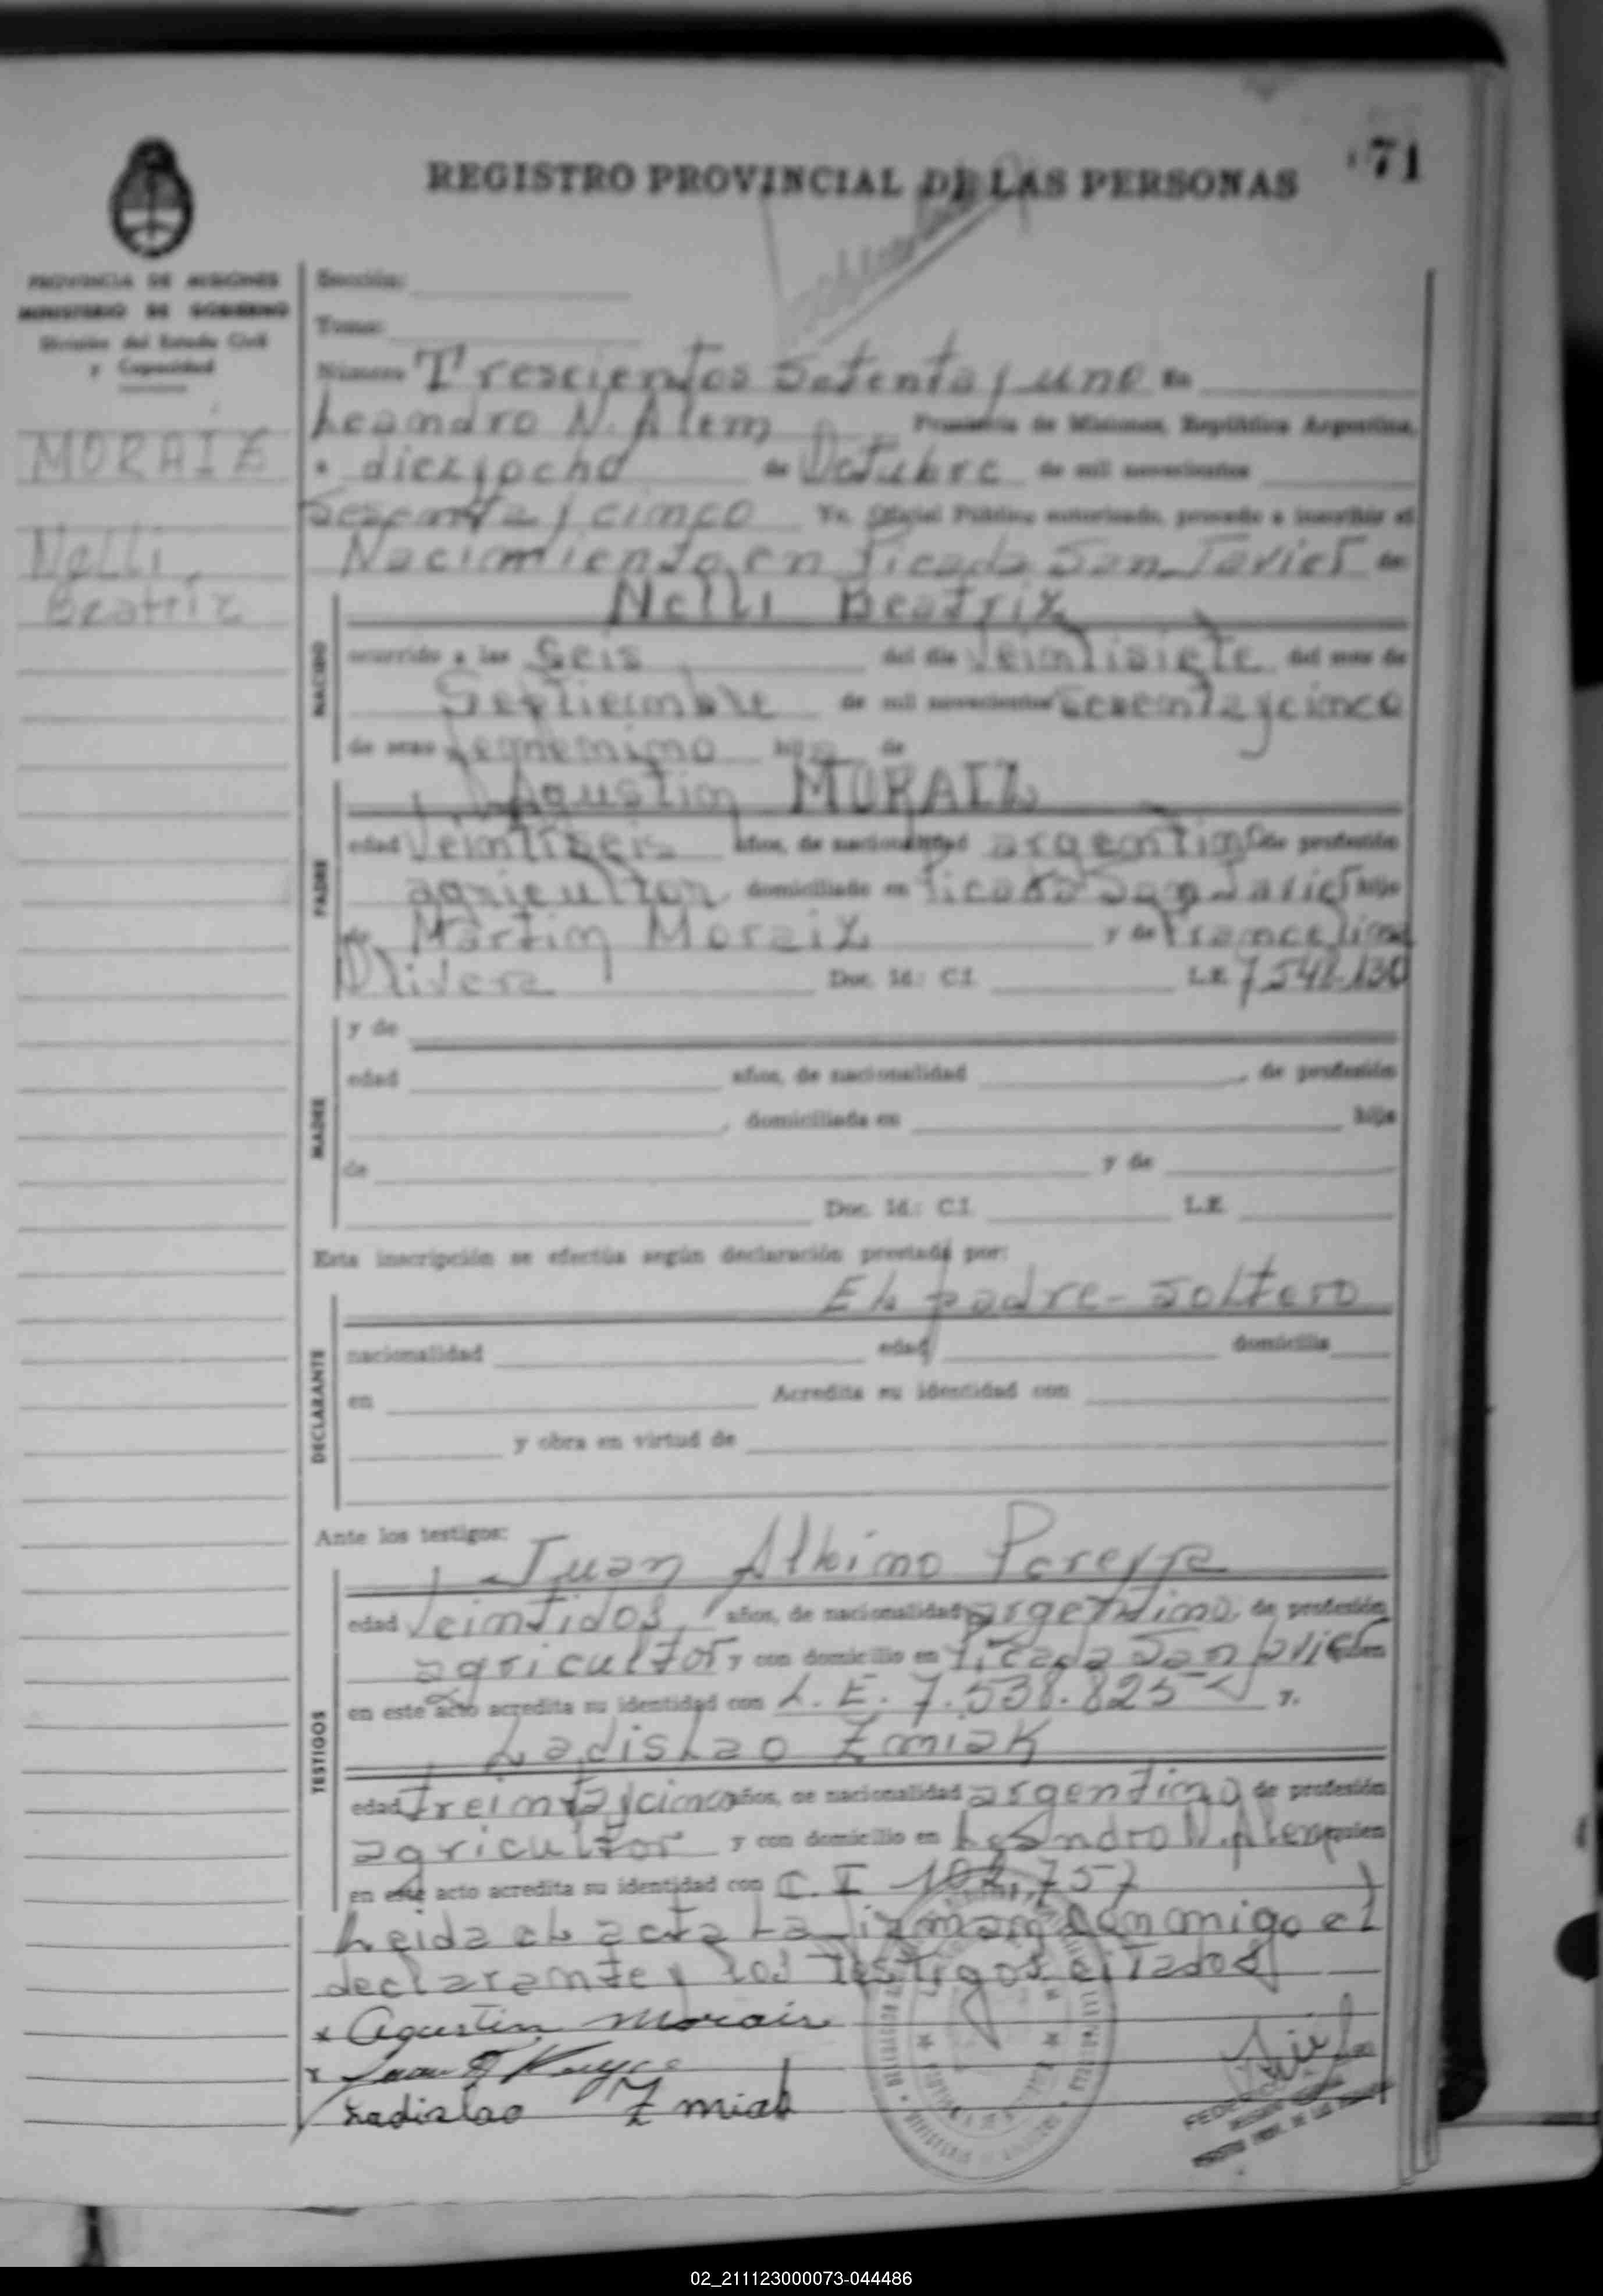 71
REGISTRO PROVINCIAL DE LAS PERSONAS
PROVINCIA DE MISIONES
MINISTERIO DE GOBIERNO
División del Estado Civil
y Capacidad
MORAIZ
Nelli
Beatriz
Sección:
Tomo:
Número Trescientos Setenta y uno En
Leandro N. Alem Provincia de Misiones, República Argentina,
a diez y ocho de Octubre de mil novecientos
Sesenta y cinco Yo, Oficial Público autorizado, procedo a inscribir el
Nacimiento en Picada San Javier de
NACIDO
Nelli Beatriz
ocurrido a las Seis del día Veintisiete del mes de
Septiembre de mil novecientos sesenta y cinco
de sexo femenino hija de
PADRE
Agustin MORAIZ
edad Veintiseis años, de nacionalidad argentino de profesión
agricultor, domiciliado en Picada San Javier hijo
de Martin Moraiz y de Francelina
Olivera Doc. Id.: C.I. L.E. 7.542.130
MADRE
y de
edad años, de nacionalidad , de profesión
, domiciliada en hija
de y de
Doc. Id.: C.I. L.E.
Esta inscripción se efectúa según declaración prestada por:
DECLARANTE
El padre - soltero
nacionalidad edad domicilia
en Acredita su identidad con
y obra en virtud de
Ante los testigos:
TESTIGOS
Juan Albino Pereyra
edad Veintidos, años, de nacionalidad argentino, de profesión
agricultor y con domicilio en Picada San Javier quien
en este acto acredita su identidad con L. E. 7.538.825 y.
Ladislao Zmiak
edad treinta y cinco años, de nacionalidad argentino de profesión
agricultor y con domicilio en Leandro N. Alem quien
en este acto acredita su identidad con C. I 102.757
Leida el acta La firman conmigo el
declarante y los testigos citados
x Agustin Morais
x Juan A Pereyra
Ladislao Zmiak
02_211123000073-044486